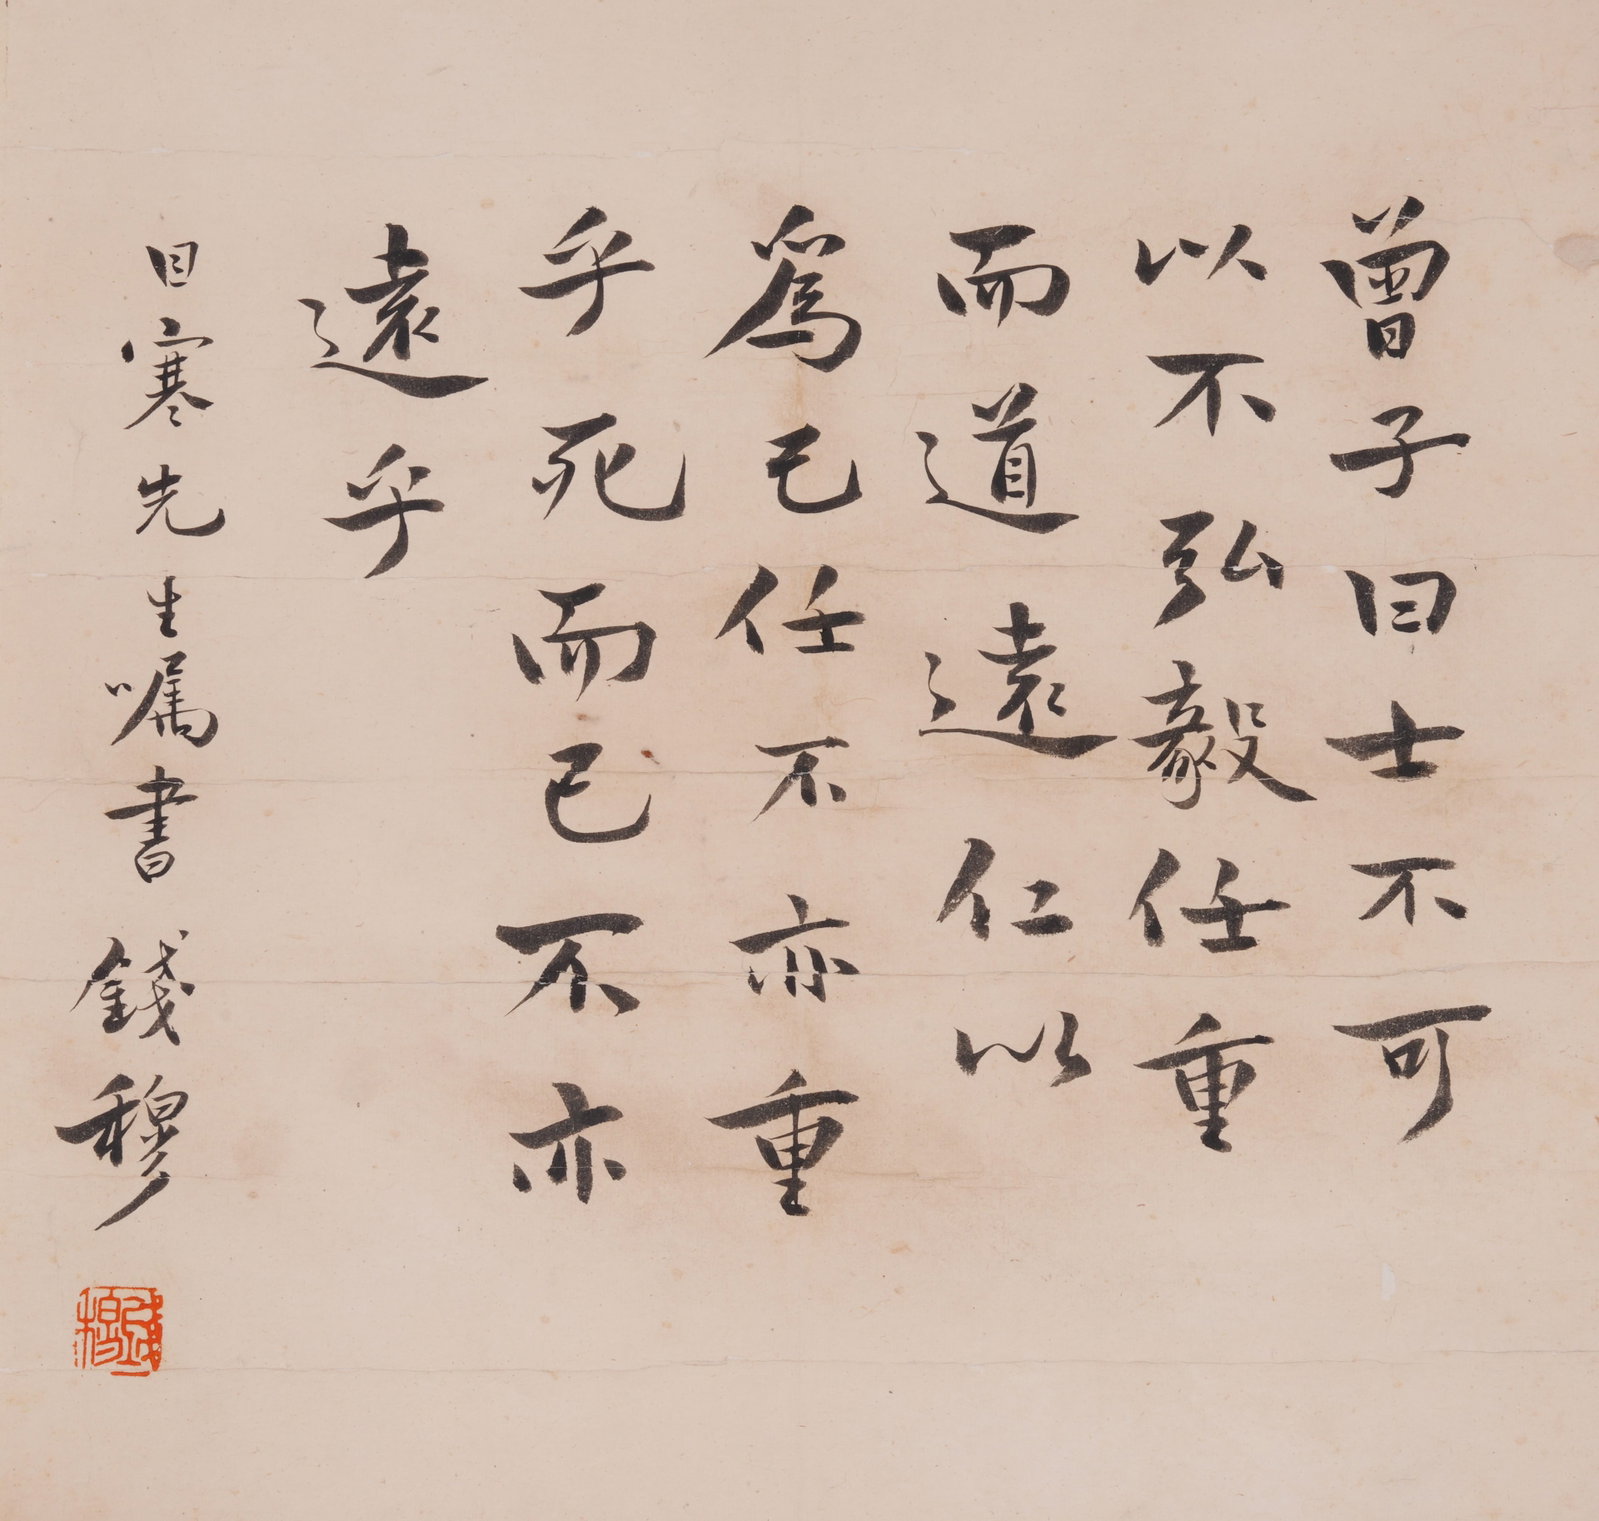 曾子曰士不可
以不弘毅任重
而道遠仁以
爲己任不亦重
乎死而已不亦
遠乎
目寒先生嘱書 錢穆
錢穆